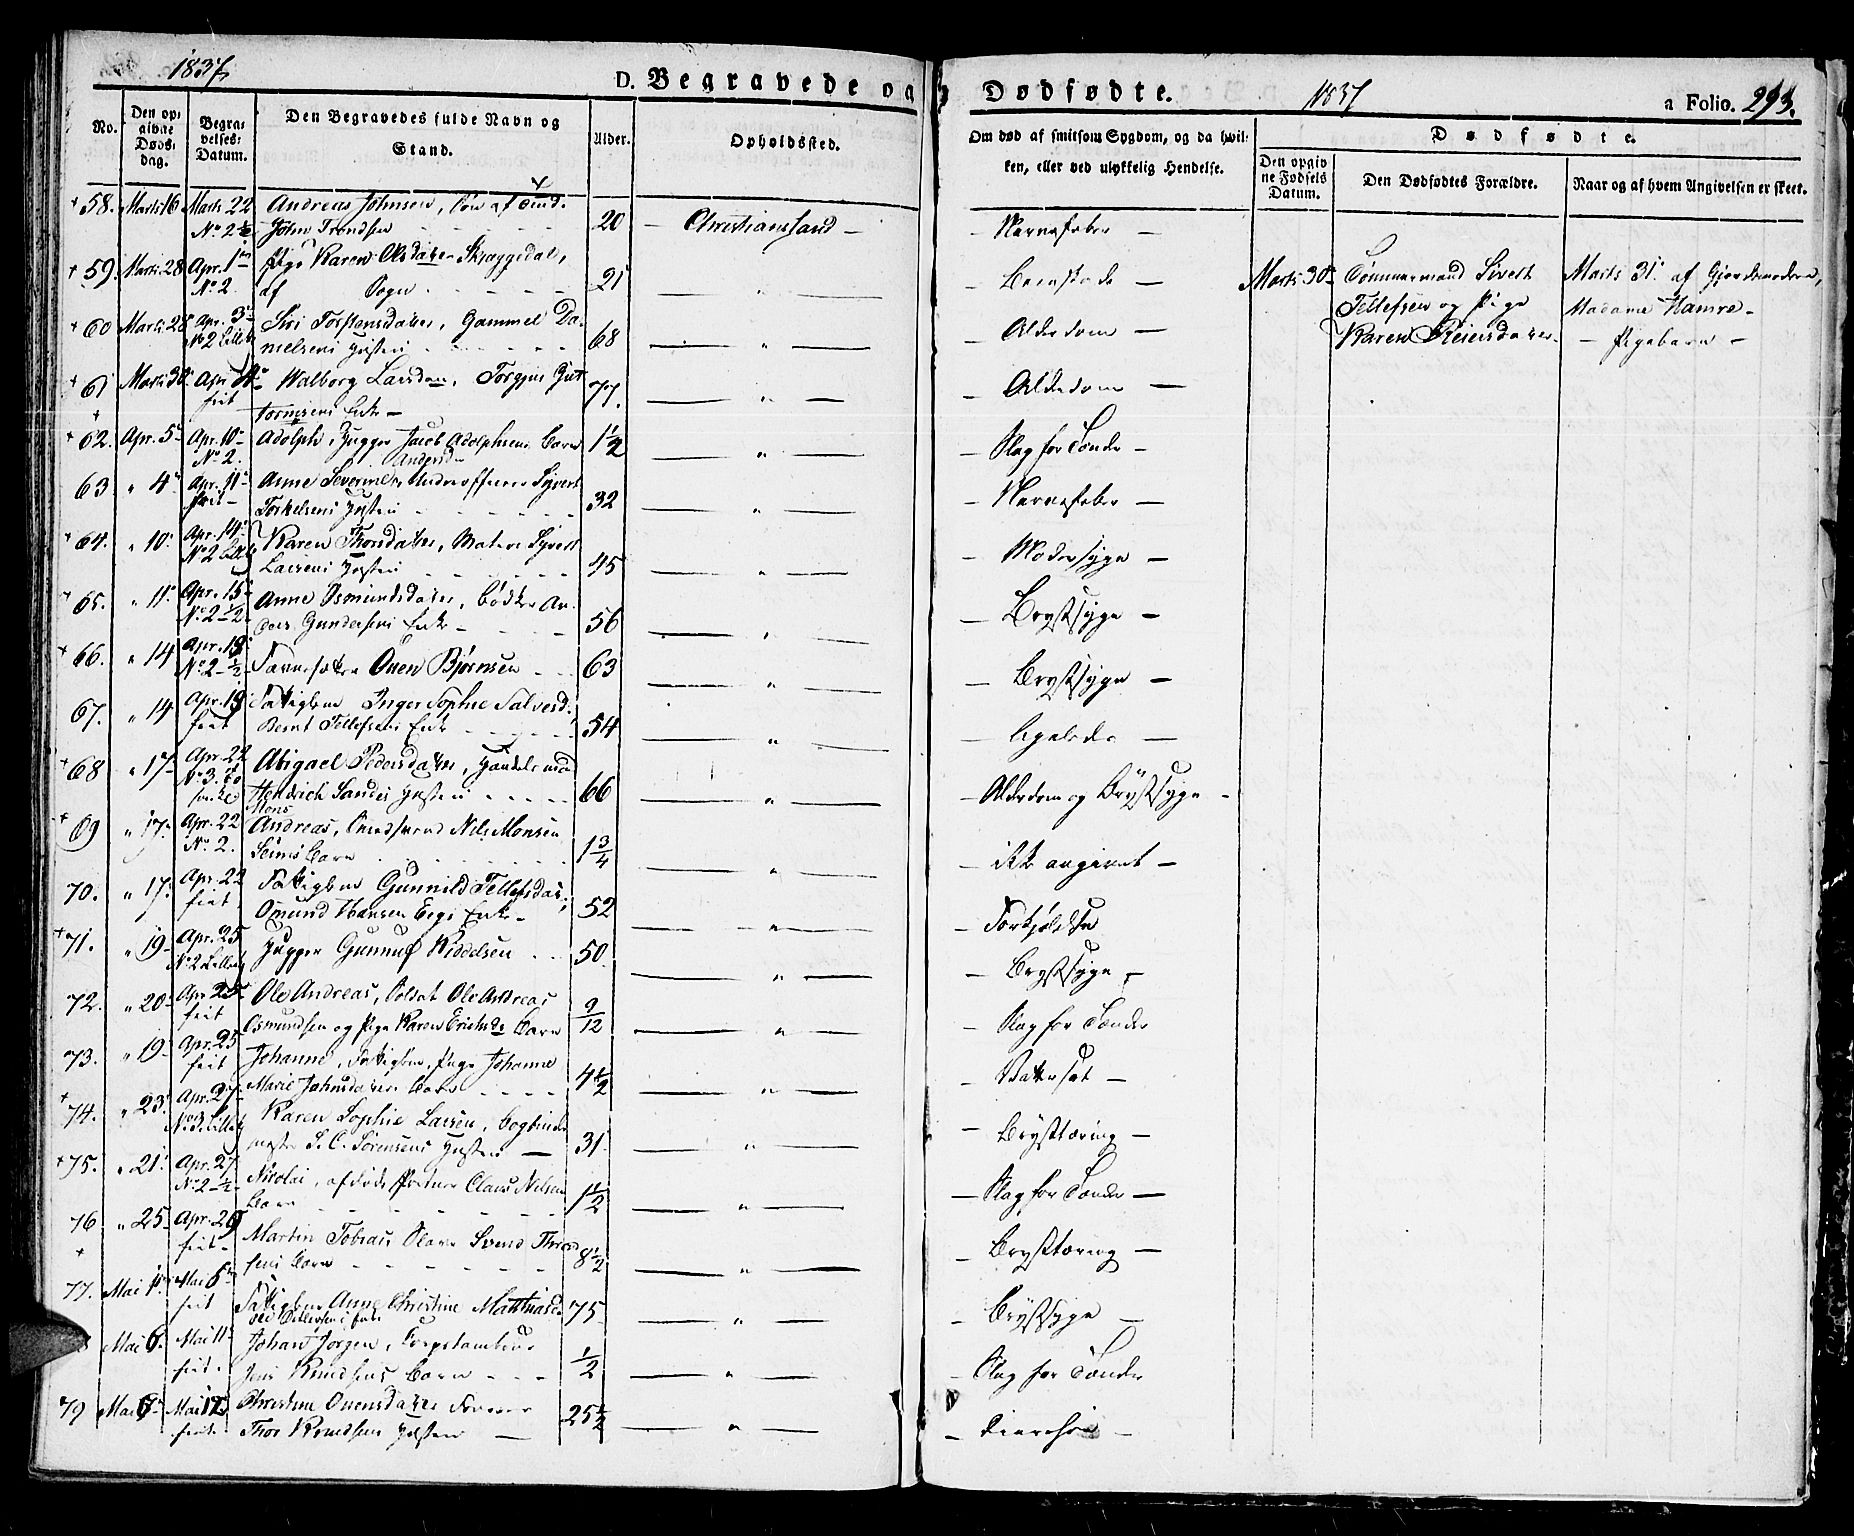 1837
D. Begravede og
No.
Den opgivne Døds-dag.
Begravelses-Datum.
Den Begravedes fulde Navn og
Stand.
Alder.
Opholdssted.
58. Marts 16 Marts 22 Andreas Johnsen, Søn af
No 2½ John Trondsen 20 Christiansand
59. Marts 28 Apr. 1 Pige Karen Olsdatter Skreggedal,
No 2. af Sogn 21 "
60 Marts 28 Apr. 3 Siri Torstensdatter, Gammel Da-
No 2 Lillek nielsens Hustru 68 "
61 Marts 30 Apr 4 Walborg Larsdatter, Torgjus Gut-
frit tormsens Enke 77. "
62. Apr. 5 Apr. 10 Adolph, Jacob Adolphsens Barn 1½
No 2. "
63 " 4 Apr. 11 Anne Severine Andersd Underofficer Syvert
frit Torkelsens Hustru 32 "
64. " 10 Apr. 14 Karen Thorsdatter, Matros Syvert
No 2 Lillek Larsens Hustru 45 "
65. " 11 Apr. 15 Anne Osmundsdatter, Bødker An-
No 2-½ ders Gundersens Enke 56 "
66. " 14 Apr. 18
No 2-½ Onen Bjørnsen 63 "
67. " 14 Apr. 19 Fattiglem Inger Sophie Salvesd.,
frit Bernt Tellefsens Enke 54 "
68 " 17 Apr. 22 Abigael Pedersdatter, Handelsmand
No 3. Hendrich Sandes Hustru 66 "
69 " 17 Apr. 22 Mons Andreas, Nels Monsen
No. 2. Barn 1¾ "
70. " 17 Apr. 22 Fattiglem Gunnild Tellefsdatter,
frit Omund Hansen Enke 52 "
71. " 19 Apr. 25 Gunnuf Kiddelsen 50
No 2 Lillek "
72. " 20 Apr. 25 Ole Andreas, Soldat Ole Andreas
frit Osmundsen og Pige Karen Erichsdr Barn 9/12 "
73. " 19 Apr. 25 Johanne, Fattiglem, Pige Johanne
frit Marie Jahnsdatters Barn 4½ "
74. " 23 Apr. 27 Karen Sophie Larsen, Bogbinder
No 3. Lillek mester S. C. Sørensens Hustru 31 "
75. " 21 Apr. 27 Nicolai, afdøde Claus Nilsen
No 2-½ Barn 1½ "
76 " 25 Apr. 29 Martin Tobias, Slave Svend
frit sens Barn 8½ "
77. Mai 1 Mai 6 Fattiglem Anne Christine Matthiasd
frit Enke 75 "
Mai 6. Mai 11 Johan Jørgen, Corpstambour
frit Jens Knudsens Barn ½ "
79 Mai 6 Mai 12 Christine Onensdatter
frit Thor Knudsens Hustru 25½ "
Dødfødte. 1837 a Folio. 293.
Om død af smitsom Sygdom, og da hvil-
ken, eller ved ulykkelig Hendelse.
Dødfødte.
Den opgivne Fødsels Datum.
Den Dødfødtes Forældre.
Naar og af hvem Angivelsen er skeet.
Nervefeber
Marts 30 Tømmermand Sivert
Tellefsen og Pige
Karen Reiersdatter
Marts 31 af Gjordemoderen,
Madame Hamre
Pigebarn
Alderdom
Alderdom
Slag for Tænder
Nervefeber
Modersyge
Brystsyge
Brystsyge
Alderdom og Brystsyge
ikke angivet
Forkjølelse
Brystsyge
Slag for Tænder
Vattersot
Brysttæring
Slag for Tænder
Brysttæring
Brystsyge
Slag for Tænder